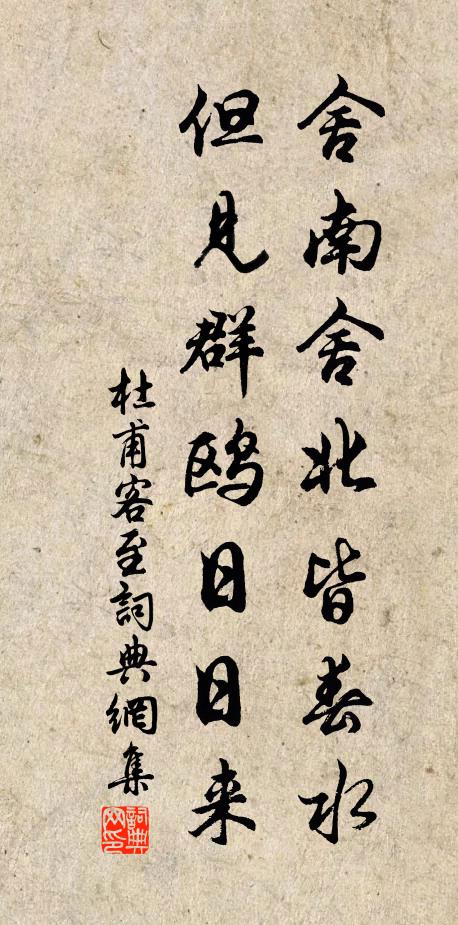 舍南舍北皆春水
但见群鸥日日来
杜甫客至詞典網集
詞典
网印